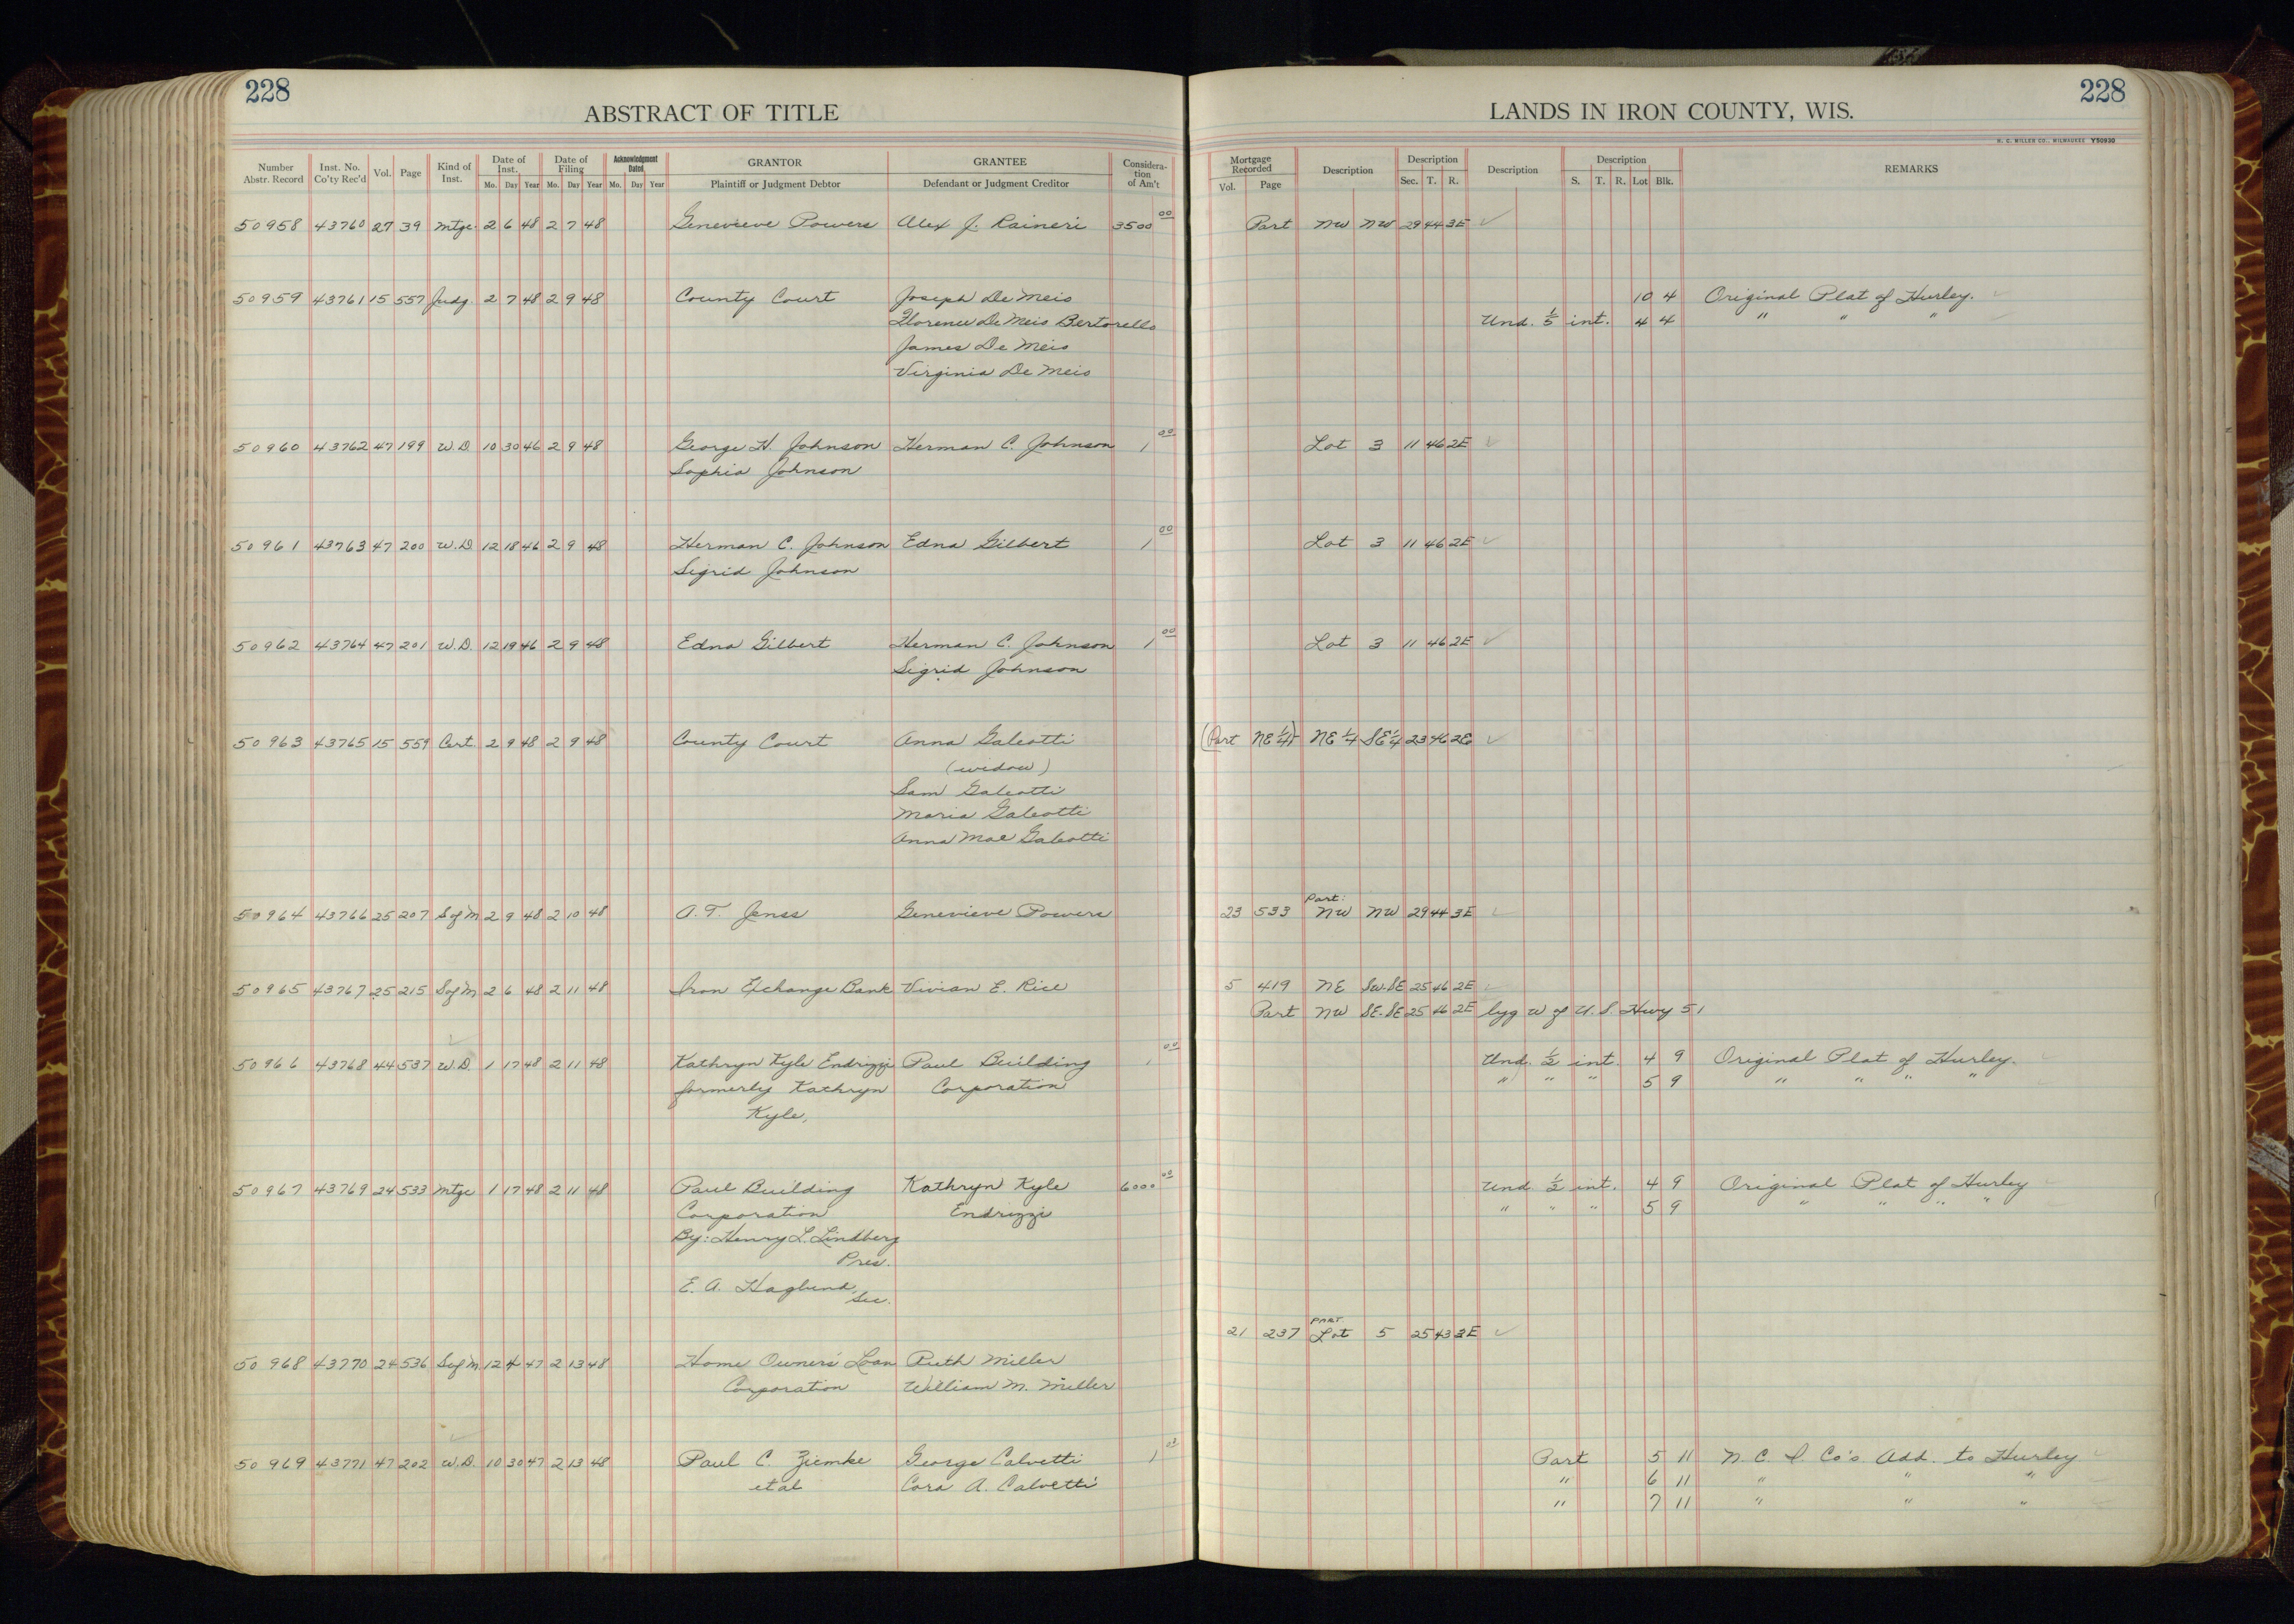 228
ABSTRACT OF TITLE
Number Abstr. Record Inst. No. Co'ty Rec'd Vol. Page Kind of Inst. Date of Inst. Mo. Day Year Date of Filing Mo. Day Year Acknowledgment Dated Mo. Day Year GRANTOR Plaintiff or Judgment Debtor GRANTEE Defendant or Judgment Creditor Consideration of Am't
50958 43760 27 39 Mtge. 2 6 48 2 7 48 Genevieve Powers Alex J. Raineri 3500 00
50959 43761 15 557 Judg. 2 7 48 2 9 48 County Court Joseph De Meis
Florence De Meis Bertorello
James De Meis
Virginia De Meis
50960 43762 47 199 W.D. 10 30 46 2 9 48 George H. Johnson Herman C. Johnson 1 00
Sophia Johnson
50961 43763 47 200 W.D. 12 18 46 2 9 48 Herman C. Johnson Edna Gilbert 1 00
Sigrid Johnson
50962 43764 47 201 W.D. 12 19 46 2 9 48 Edna Gilbert Herman C. Johnson 1 00
Sigrid Johnson
50963 43765 15 559 Cert. 2 9 48 2 9 48 County Court Anna Galeotti
(widow)
Sam Galeotti
Maria Galeotti
Anna Mae Galeotti
50964 43766 25 207 S of M 2 9 48 2 10 48 A. T. Jenss Genevieve Powers
50965 43767 25 215 S of M 2 6 48 2 11 48 Iron Exchange Bank Vivian E. Rice
50966 43768 44 537 W.D. 1 17 48 2 11 48 Kathryn Kyle Endrizzi Paul Building 1 00
formerly Kathryn Corporation
Kyle,
50967 43769 24 533 Mtge 1 17 48 2 11 48 Paul Building Kathryn Kyle 6000 00
Corporation Endrizzi
By: Henry L. Lindberg
Pres.
E. A. Haglund,
Sec.
50968 43770 24 536 S of M 12 4 47 2 13 48 Home Owners' Loan Ruth Miller
Corporation William M. Miller
50969 43771 47 202 W.D. 10 30 47 2 13 48 Paul C. Ziemke George Calvetti 1 00
et al Cora A. Calvetti
228
LANDS IN IRON COUNTY, WIS.
H. C. MILLER CO., MILWAUKEE Y50930
Mortgage Recorded Vol. Page Description Description Sec. T. R. Description Description S. T. R. Lot Blk. REMARKS
Part NW NW 29 44 3E
10 4 Original Plat of Hurley.
Und. 1/5 int. 4 4 " " "
Lot 3 11 46 2E
Lot 3 11 46 2E
Lot 3 11 46 2E
(Part NE 1/4) NE 1/4 SE 1/4 23 46 2E
Part:
23 533 NW NW 29 44 3E
5 419 NE SW-SE 25 46 2E
Part NW SE-SE 25 46 2E lyg W of U.S. Hwy 51
Und. 1/2 int. 4 9 Original Plat of Hurley.
" " " 5 9 " " " "
Und. 1/2 int. 4 9 Original Plat of Hurley
" " " 5 9 " " " "
PART
21 237 Lot 5 25 43 3E
Part 5 11 N. C. I. Co's Add. to Hurley
" 6 11 " " "
" 7 11 " " "